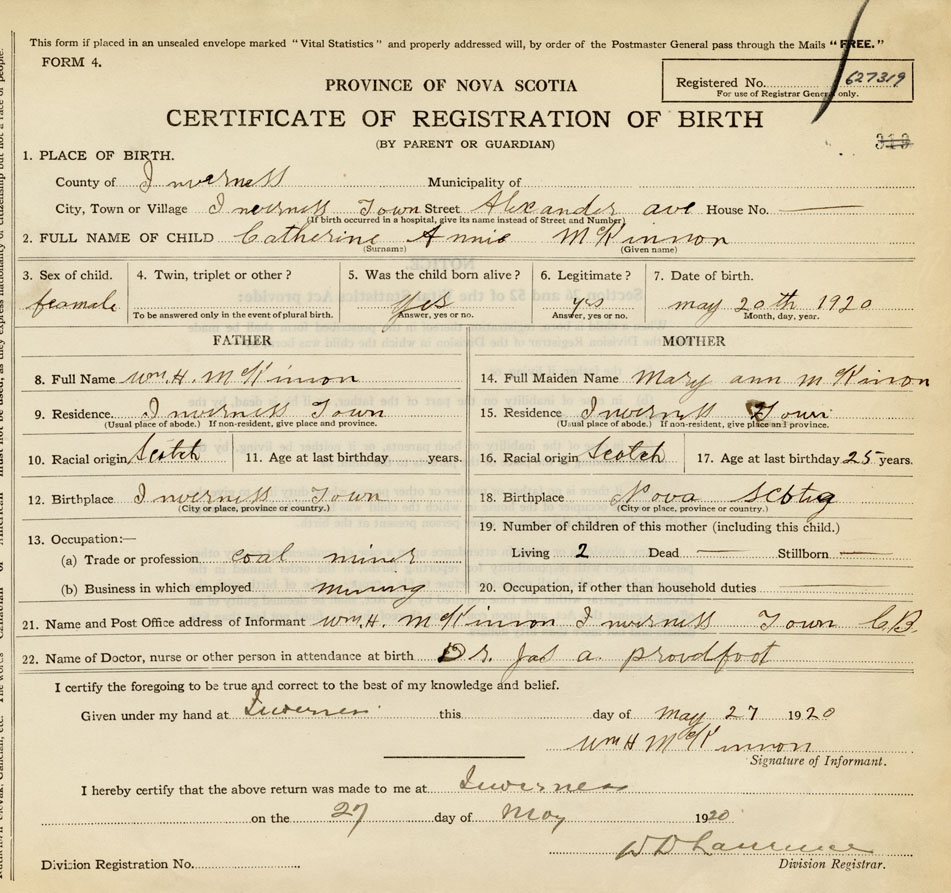 This form if placed in an unsealed envelope marked "Vital Statistics" and properly addressed will, by order of the Postmaster General pass through the Mails "FREE."
FORM 4.
Registered No. 627319
For use of Registrar General only.
PROVINCE OF NOVA SCOTIA
CERTIFICATE OF REGISTRATION OF BIRTH
(BY PARENT OR GUARDIAN)
313
1. PLACE OF BIRTH.
County of Inverness Municipality of
City, Town or Village Inverness Town Street Alexander ave House No. —
(If birth occurred in a hospital, give its name instead of Street and Number)
2. FULL NAME OF CHILD Catherine Annie McKinnon
(Surname) (Given name)
3. Sex of child. 4. Twin, triplet or other? 5. Was the child born alive? 6. Legitimate? 7. Date of birth.
female yes yes may 20th 1920
To be answered only in the event of plural birth. Answer, yes or no. Answer, yes or no. Month, day, year.
FATHER MOTHER
8. Full Name Wm H. McKinnon 14. Full Maiden Name Mary ann McKinnon
9. Residence. Inverness Town 15. Residence Inverness Town
(Usual place of abode.) If non-resident, give place and province. (Usual place of abode.) If non-resident, give place and province.
10. Racial origin Scotch 11. Age at last birthday years. 16. Racial origin Scotch 17. Age at last birthday 25 years.
12. Birthplace Inverness Town 18. Birthplace Nova Scotia
(City or place, province or country.) (City or place, province or country.)
13. Occupation:— 19. Number of children of this mother (including this child.)
(a) Trade or profession coal miner Living 2 Dead — Stillborn —
(b) Business in which employed mining 20. Occupation, if other than household duties —
21. Name and Post Office address of Informant Wm H. McKinnon Inverness Town C.B.
22. Name of Doctor, nurse or other person in attendance at birth Dr. Jas a. proudfoot
I certify the foregoing to be true and correct to the best of my knowledge and belief.
Given under my hand at Inverness this day of may 27 1920
Wm H McKinnon
Signature of Informant.
I hereby certify that the above return was made to me at Inverness
on the 27 day of May 1920
Division Registration No. Division Registrar.